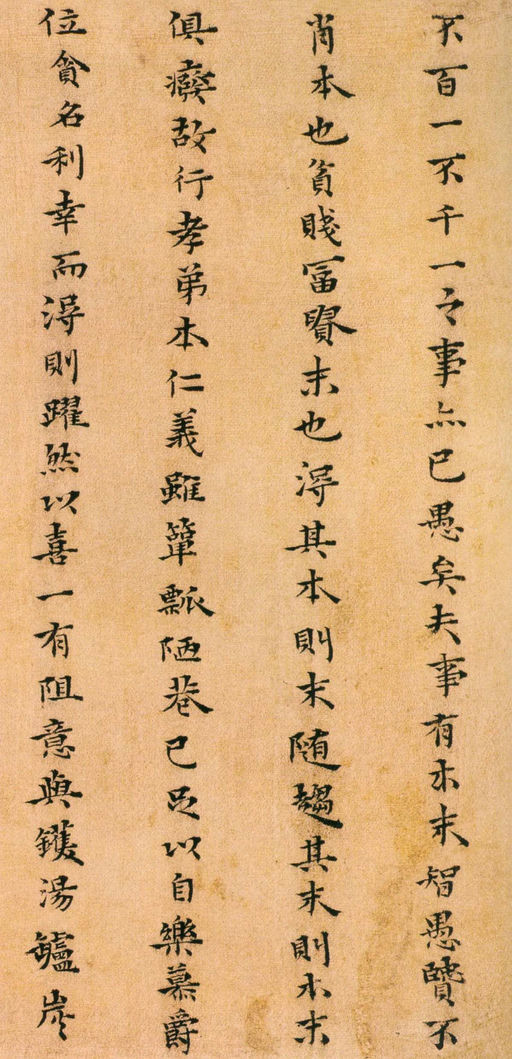 不百一不千一之事亦已愚矣夫事有本末智愚賢不
肖本也貧賤冨貴末也得其本則末随趨其末則本末
俱癈故行孝弟本仁義雖簞瓢陋巷已足以自樂慕爵
位貪名利幸而得則躍然以喜一有阻意與鑊湯鑪炭